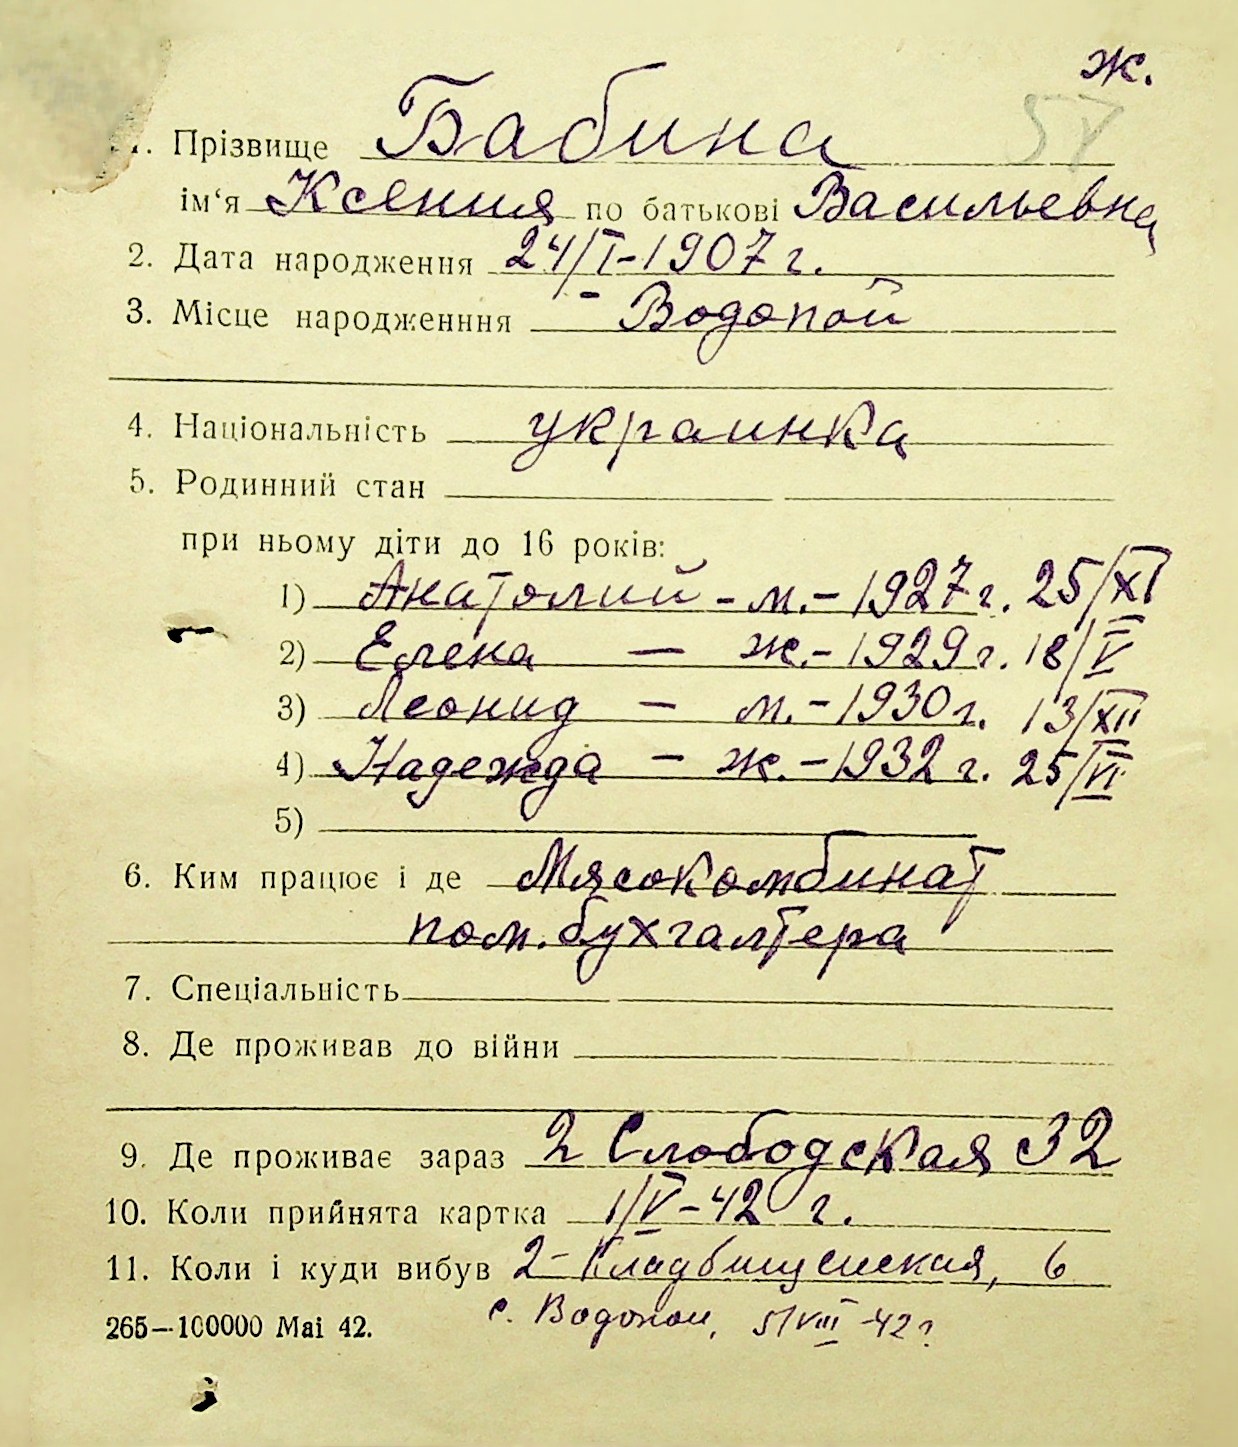 ж.
1. Прізвище Бабина
ім'я Ксения по батькові Васильевна
2. Дата народження 24/I-1907 г.
3. Місце народженння Водопой
4. Національність украинка
5. Родинний стан
при ньому діти до 16 років:
1) Анатолий - м. - 1927 г. 25/XI
2) Елена - ж. - 1929 г. 18/V
3) Леонид - м. - 1930 г. 13/XII
4) Надежда - ж. - 1932 г. 25/VI
5)
6. Ким працює і де Мясокомбинат
пом. бухгалтера
7. Спеціальність
8. Де проживав до війни
9. Де проживає зараз 2 Слободская 32
10. Коли прийнята картка 1/V-42 г.
11. Коли і куди вибув 2-Кладбищенская, 6
265—100000 Mai 42. с. Водопой, 5/VIII-42 г.